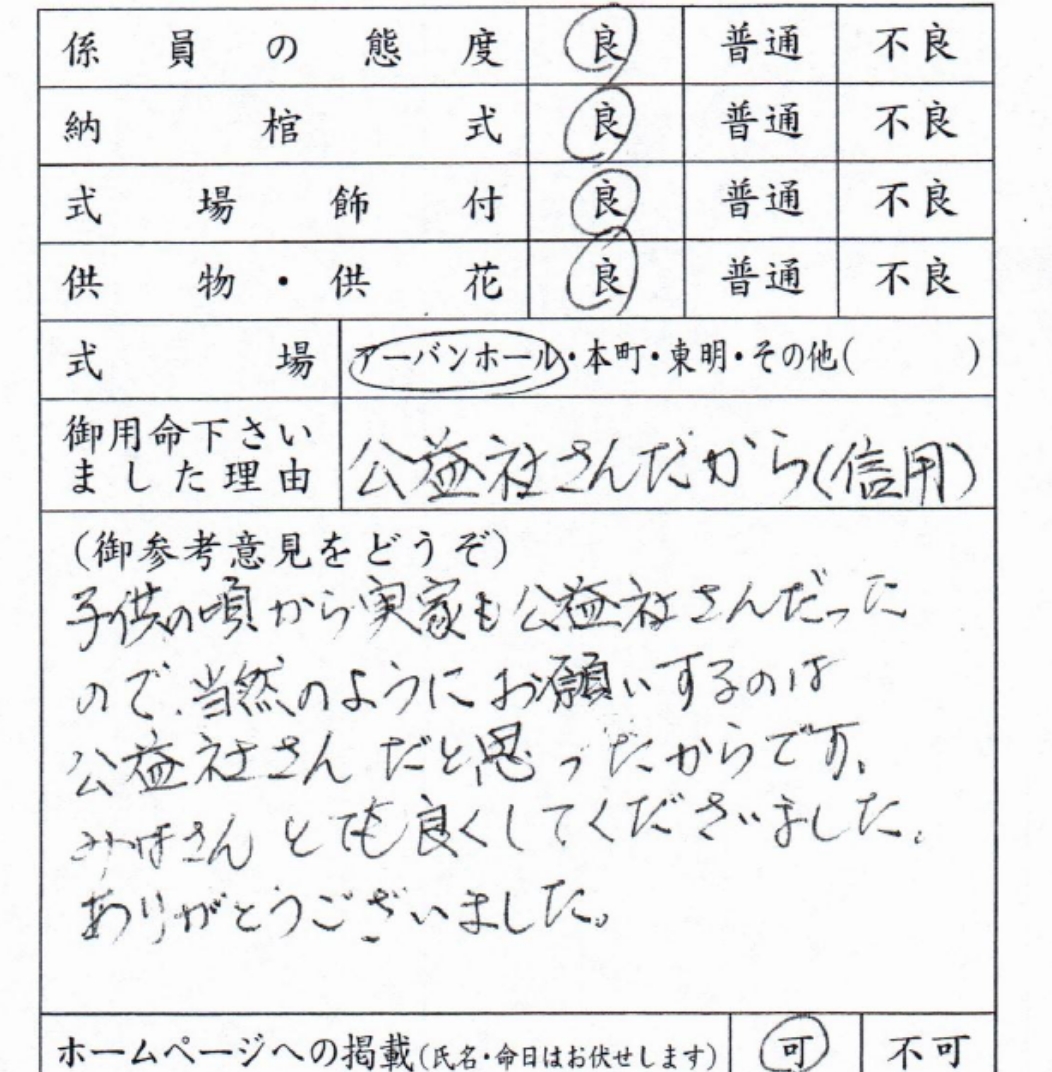 係員の態度 良 普通 不良
納棺式 良 普通 不良
式場飾付 良 普通 不良
供物・供花 良 普通 不良
式場 アーバンホール・本町・東明・その他( )
御用命下さい
ました理由
公益社さんだから(信用)
(御参考意見をどうぞ)
子供の頃から実家も公益社さんだった
ので、当然のようにお願いするのは
公益社さんだと思ったからです。
さん とても良くしてくださいました。
ありがとうございました。
ホームページへの掲載(氏名・命日はお伏せします) 可 不可